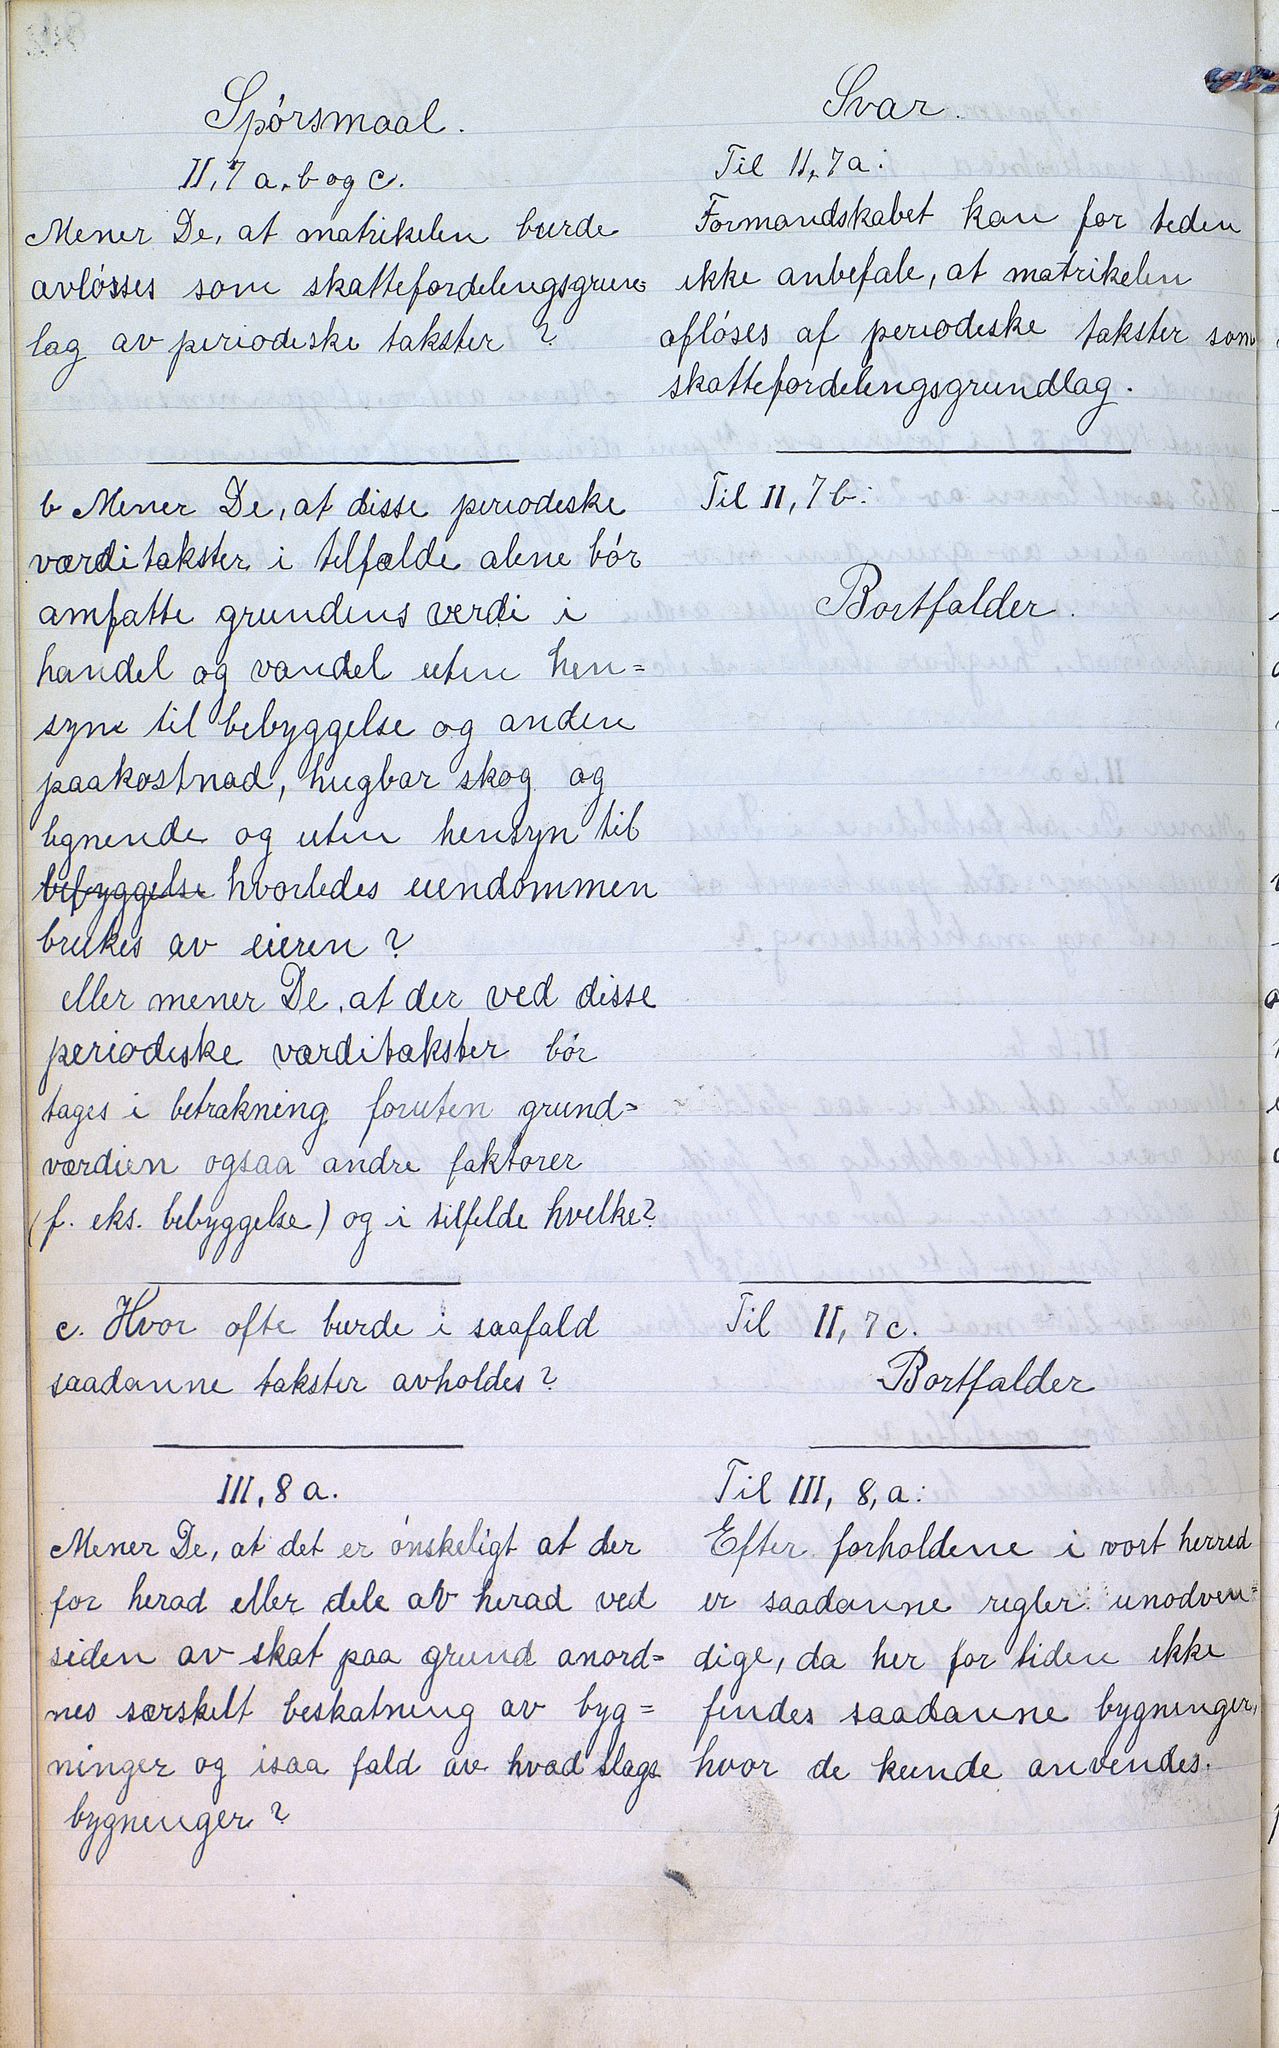 Spórsmaal.
II, 7 a, b og c.
Mener De, at matrikelen burde
avlósses som skattefordelingsgrun=
lag av periodiske takster?
b Mener De, at disse periodiske
værditakster i tilfælde alene bór
omfatte grundens verdi i
handel og vandel uten hen=
syn til bebyggelse og anden
paakostnad, hugbar skog og
lignende og uten hensyn til
bebyggelse hvorledes eiendommen
brukes av eieren?
eller mener De, at der ved disse
periodiske værditakster bór
tages i betrakning foruten grund=
værdien ogsaa andre faktorer
(f. eks. bebyggelse) og i tilfelde hvilke?
c. Hvor ofte burde i saafald
saadanne takster avholdes?
III, 8 a.
Mener De, at det er ónskeligt at der
for herad eller dele av herad ved
siden av skat paa grund anord=
nes særskilt beskatning av byg=
ninger og isaa fald av hvad slags
bygninger?
Svar.
Til II, 7 a:
Formandskabet kan for tiden
ikke anbefale, at matrikelen
aflóses af periodiske takster som
skattefordelingsgrundlag.
Til II, 7 b:
Bortfalder.
Til II, 7 c.
Bortfalder
Til III, 8, a:
Efter forholdene i vort herred
er saadanne regler unodven=
dige, da her for tiden ikke
findes saadanne bygninger,
hvor de kunde anvendes.